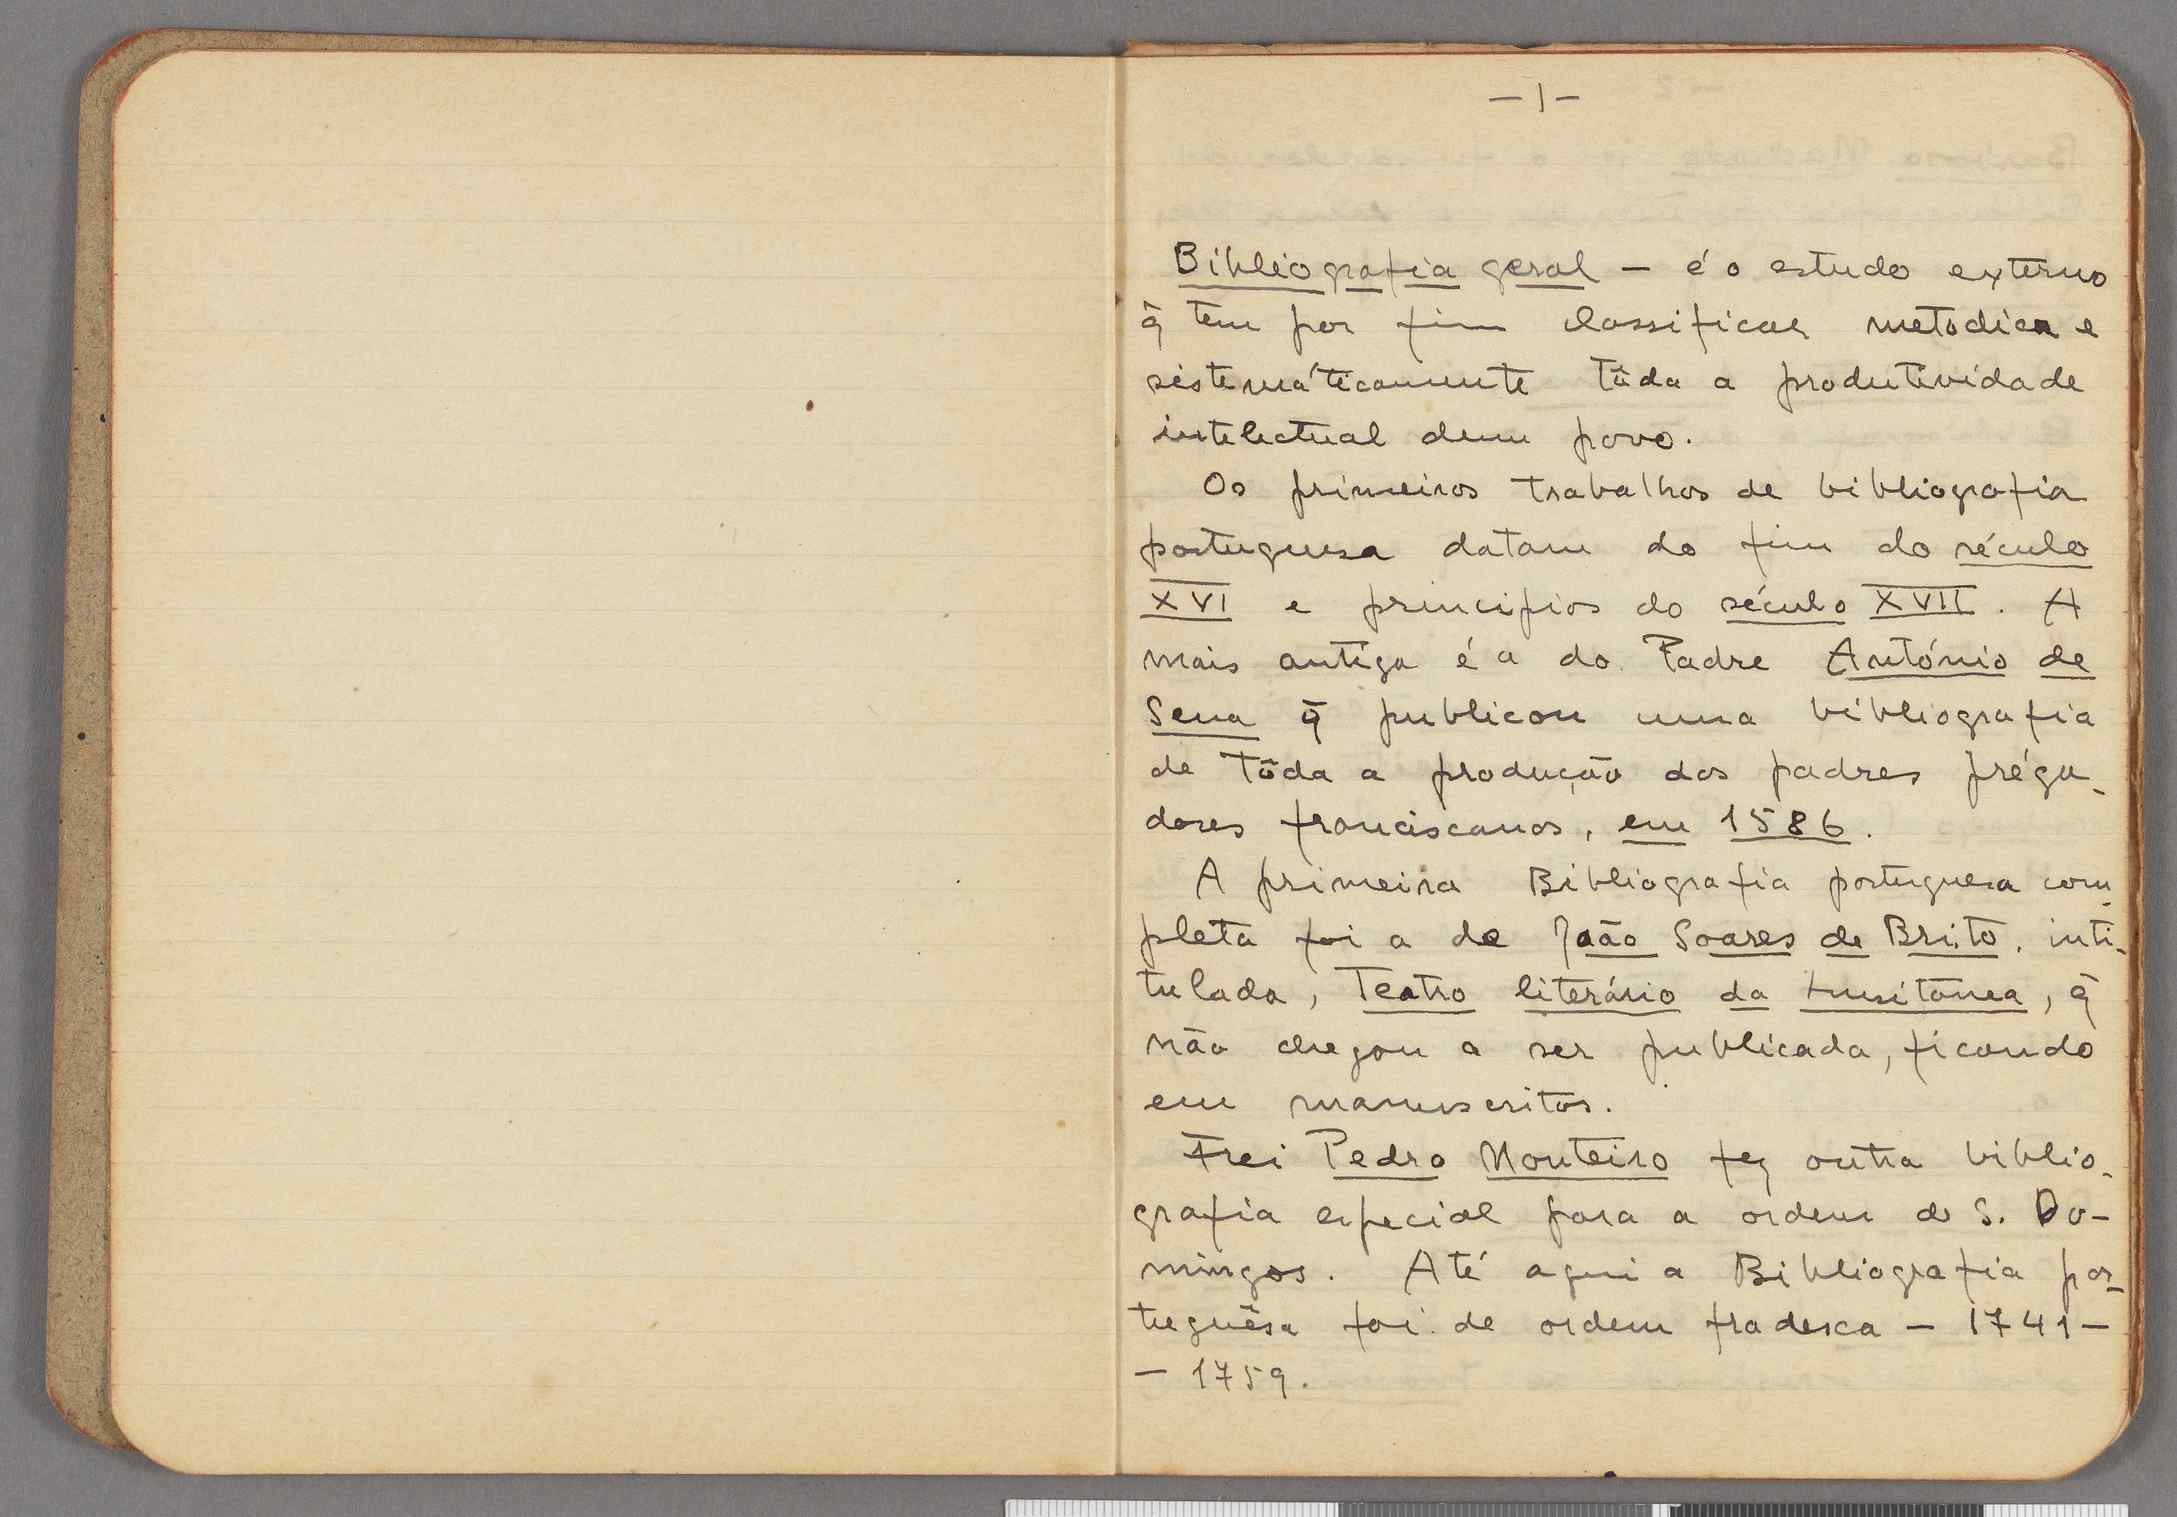 -1-
Bibliografia geral - é o estudo externo
q̃ tem por fim classificar metodica e
sistemáticamente tôda a produtividade
intelectual dum povo.
Os primeiros trabalhos de bibliografia
portuguesa datam do fim do século
XVI e princípios do século XVII. A
mais antiga é a do Padre António de
Sena q̃ publicou uma bibliografia
de tôda a produção dos padres préga-
dores franciscanos, em 1586.
A primeira Bibliografia portuguesa com-
pleta foi a de João Soares de Brito, inti-
tulada, Teatro literário da Lusitânea, q̃
não chegou a ser publicada, ficando
em manuscritos.
Frei Pedro Monteiro fez outra biblio-
grafia especial para a ordem de S. Do-
mingos. Até aqui a Bibliografia por-
tuguêsa foi de ordem fradesca - 1741-
- 1759.